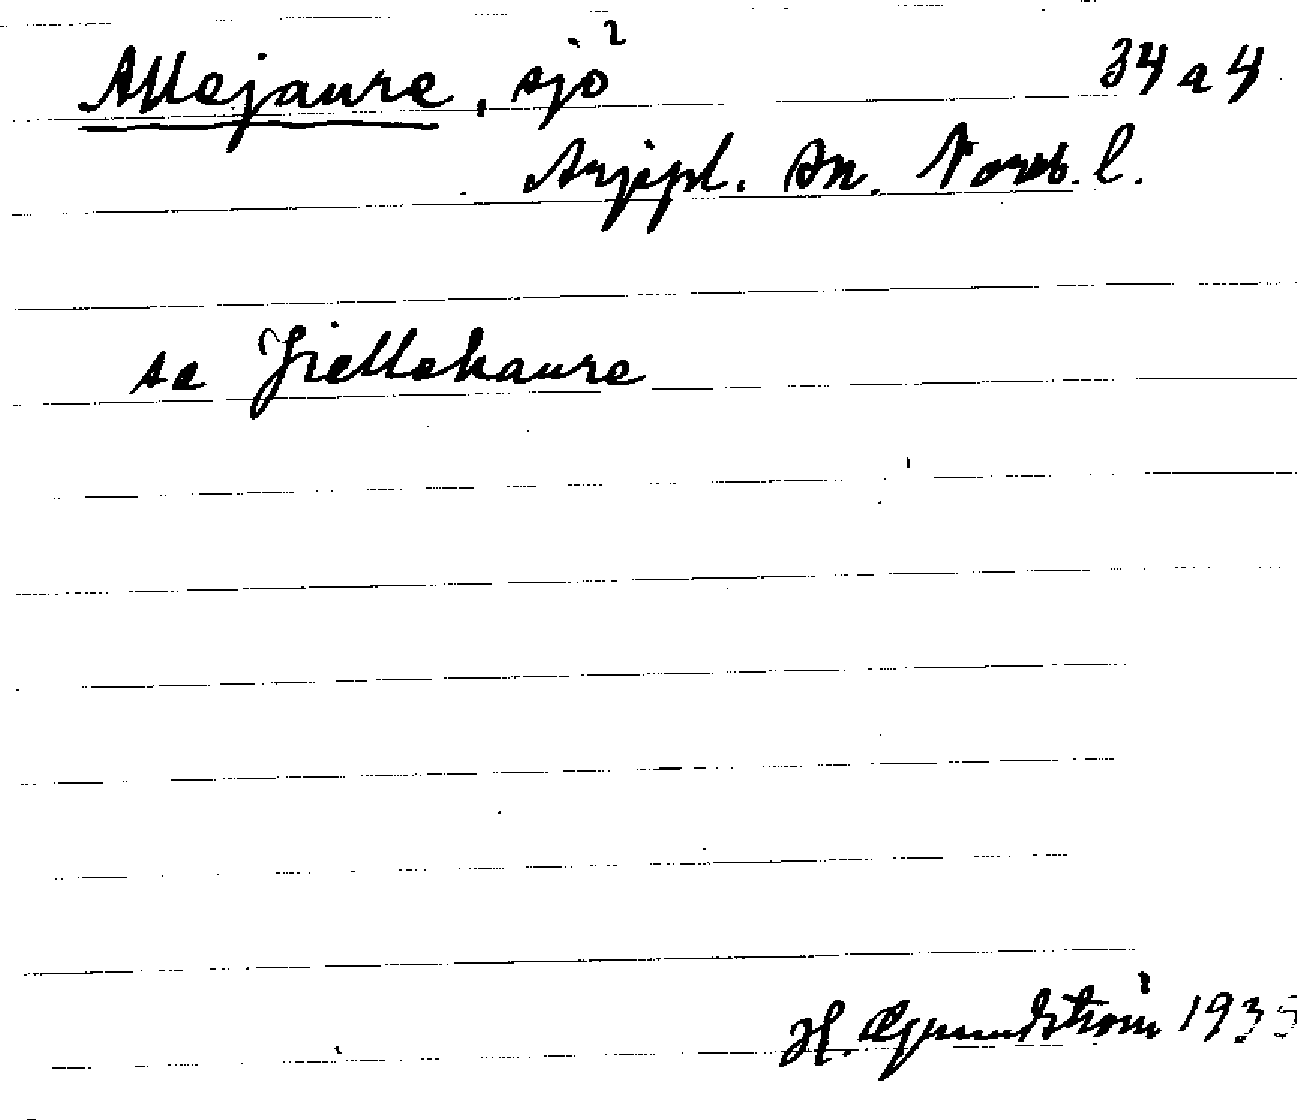 Allejaure, sjö 34 a 4
Arjepl. sn. Norrb. l.
se Jiellekaure
H. Grundström 1935